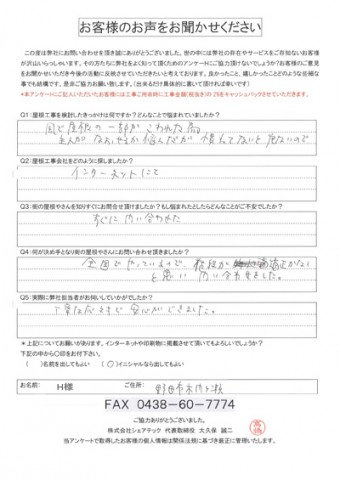 お客様のお声をお聞かせください
この度は弊社にお問い合わせを頂き誠にありがとうございました。世の中には弊社の存在やサービスをご存知ないお客様
が沢山いらっしゃいます。その方たちに弊社をよく知って頂くためのアンケートにご協力頂けないでしょうか？お客様のご意見
をお聞かせいただき今後の活動に反映させていただきたいと考えております。良かったこと、嬉しかったことなどの些細な
事でも結構です。是非ご協力お願い致します。（出来るだけ具体的に書いて頂ければ幸いです）
＊本アンケートにご記入いただいたお客様には工事ご依頼時に工事金額（税抜き）の2%をキャッシュバックさせていただきます。
Q1：屋根工事を検討したきっかけは何ですか？どんなことで悩まれていましたか？
風で屋根の一部がこわれた為
Q2：屋根工事会社をどのように探しましたか？
インターネットにて
Q3：街の屋根やさんを知りすぐにお問合せ頂けましたか？もし悩まれたとしたらどんなことがご不安でしたか？
すぐに問い合わせた
Q4：何が決め手となり街の屋根やさんにお問い合わせ頂きましたか？
全国でやっているので、値段が 適正かなと
と思い 問い合わせました。
Q5：実際に弊社担当者がお伺いしていかがでしたか？
丁寧な対応で安心ができました。
＊上記についてお願いがあります。インターネットや印刷物に掲載させて頂いてもよろしいでしょうか？
下記の中から〇印をお付下さい。
（　）名前を出してもよい　（〇）イニシャルなら出してもよい
お名前： H様 ご住所： 野田市
FAX 0438-60-7774
ご協力ありがとうございました。
株式会社シェアテック 代表取締役 大久保 誠二
当アンケートで取得したお客様の個人情報は関係法規に基づき厳正に管理いたします。